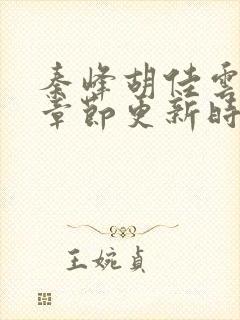 秦峰胡佳雲
章節更新時
王婉貞